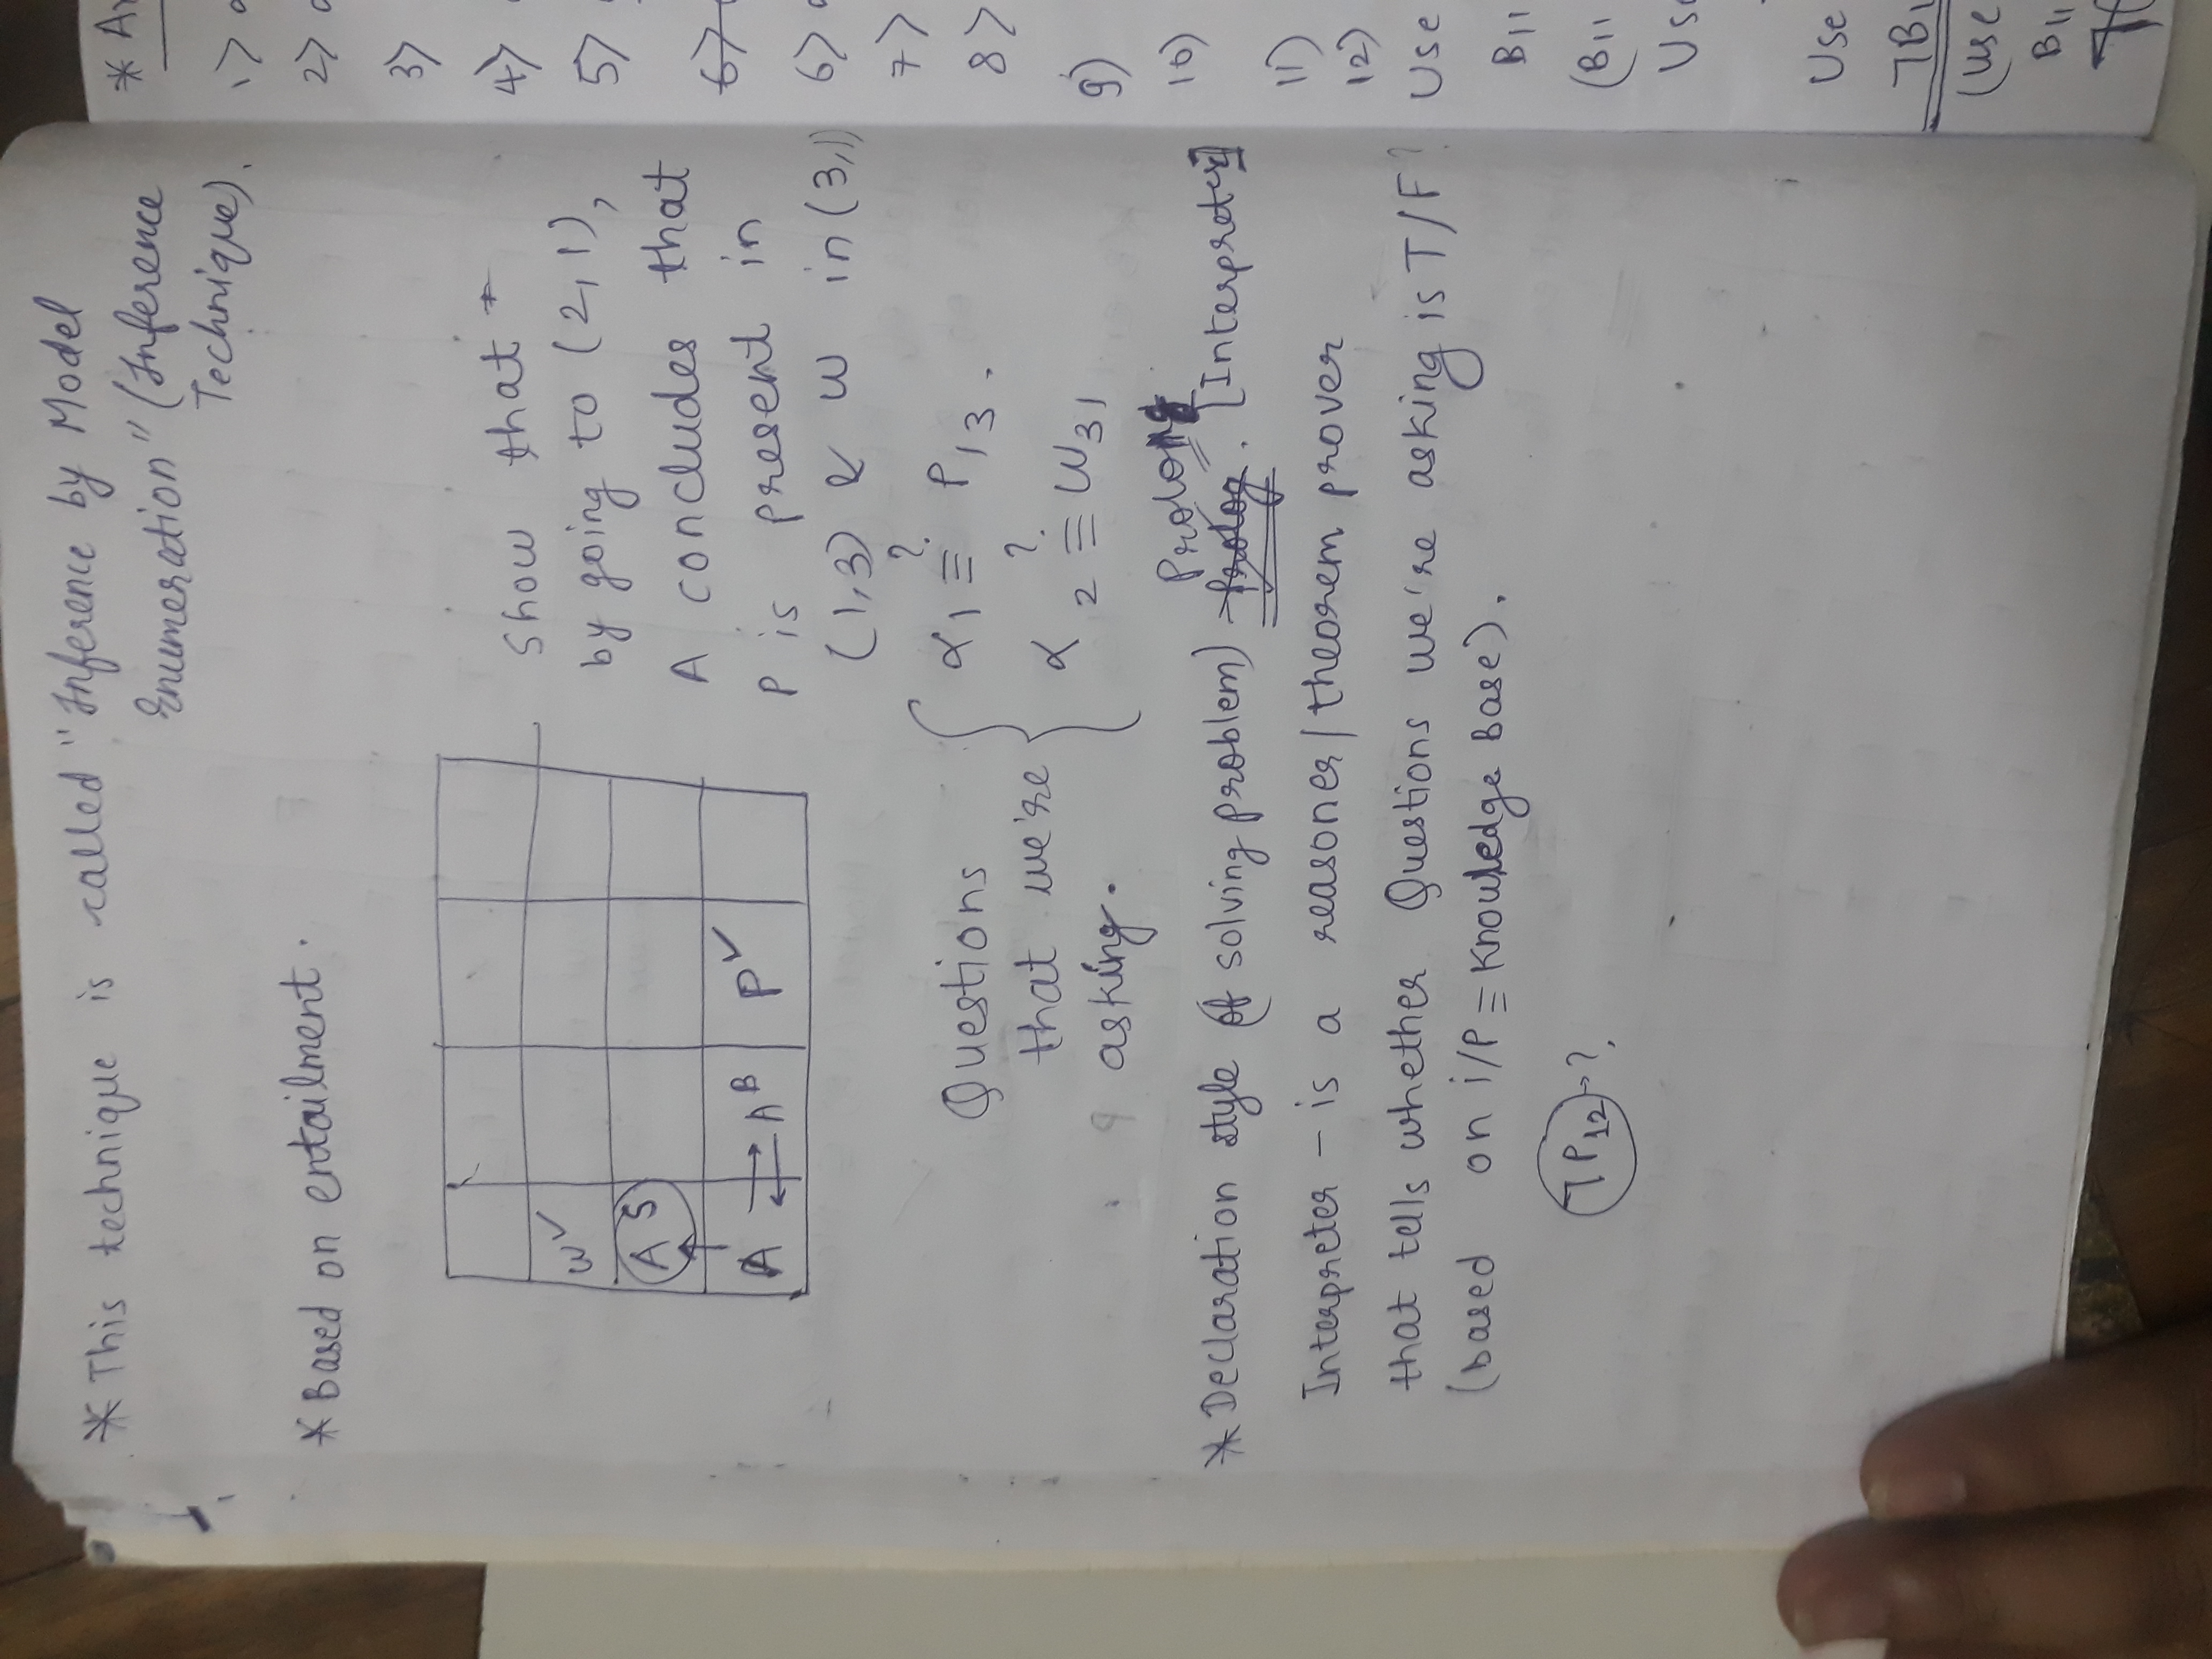 * This technique is called "Inference by Model
Enumeration" (Inference
Technique).
* Based on entailment.
W✓
A S
A
A B
P✓
Show that
by going to (2,1),
A concludes that
P is present in
(1,3) & W in (3,1)
Questions
that we're
asking.
α1 ≡? P13.
α2 ≡? W31
* Declaration style (of solving problem) Prolog. [Interpreter]
Interpreter - is a reasoner/theorem prover
that tells whether Questions we're asking is T/F?
(based on i/P ≡ Knowledge Base).
¬P12 ?
1>
2>
3>
4>
5>
6>
6>
7>
8>
9)
10)
11)
12)
Use
B11
(B11
Use
Use
¬B1
(use
B11